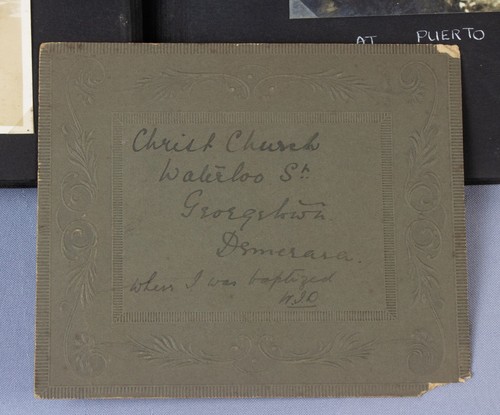 AT PUERTO
Christ Church
Waterloo St.
Georgetown
Demerara.
where I was baptized